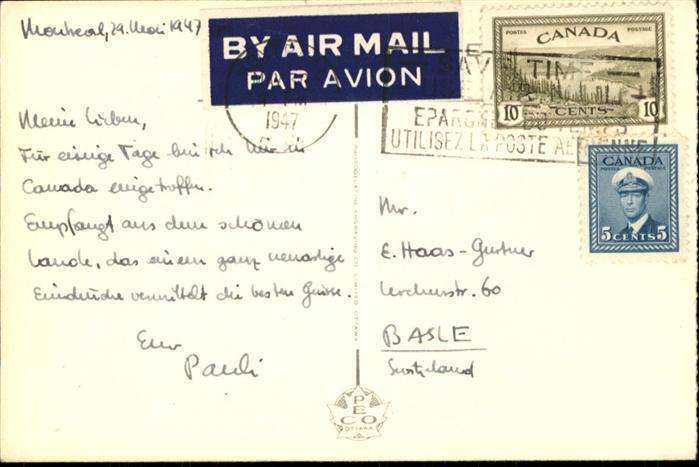 Montreal, 29. Mai 1947
BY AIR MAIL
PAR AVION
POSTES POSTAGE
CANADA
10 CENTS 10
SAVE TIME
1947
EPARGNEZ DU TEMPS
UTILISEZ LA POSTE AERIENNE
CANADA
POSTES POSTAGE
5 CENTS 5
Meine Lieben,
Für einige Tage bin ich hier in
Canada eingetroffen.
Empfangt aus dem schönen
Lande, das einem ganz neuartige
Eindrücke vermittelt die besten Grüsse.
Euer
Pauli
Mr.
E. Haas-Gurtner
Lerchenstr. 60
BASLE
Switzerland
PECO
OTTAWA